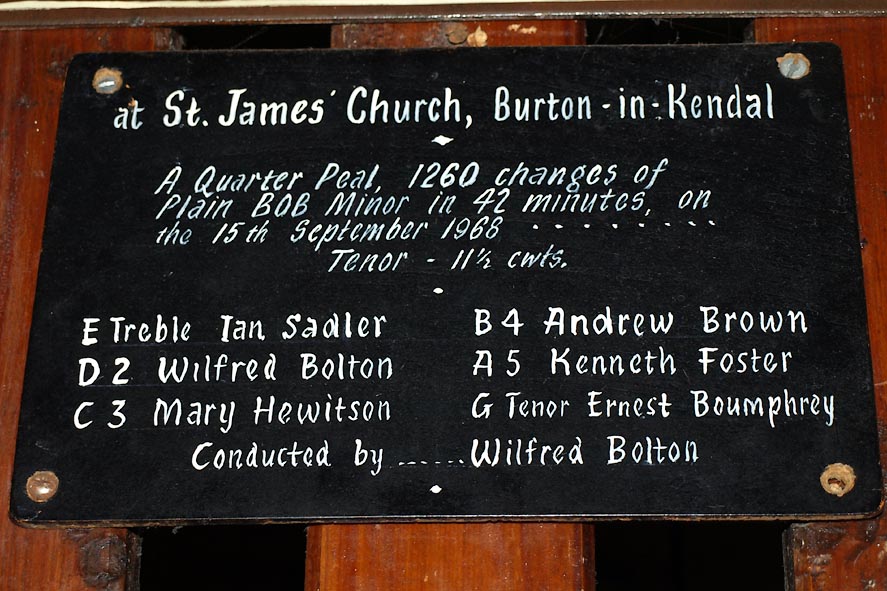 at St. James' Church, Burton-in-Kendal
A Quarter Peal, 1260 changes of
Plain BOB Minor in 42 minutes, on
the 15th September 1968 . . . . . . . . .
Tenor - 11½ cwts.
E Treble Ian Sadler
D 2 Wilfred Bolton
C 3 Mary Hewitson
B 4 Andrew Brown
A 5 Kenneth Foster
G Tenor Ernest Boumphrey
Conducted by ...... Wilfred Bolton